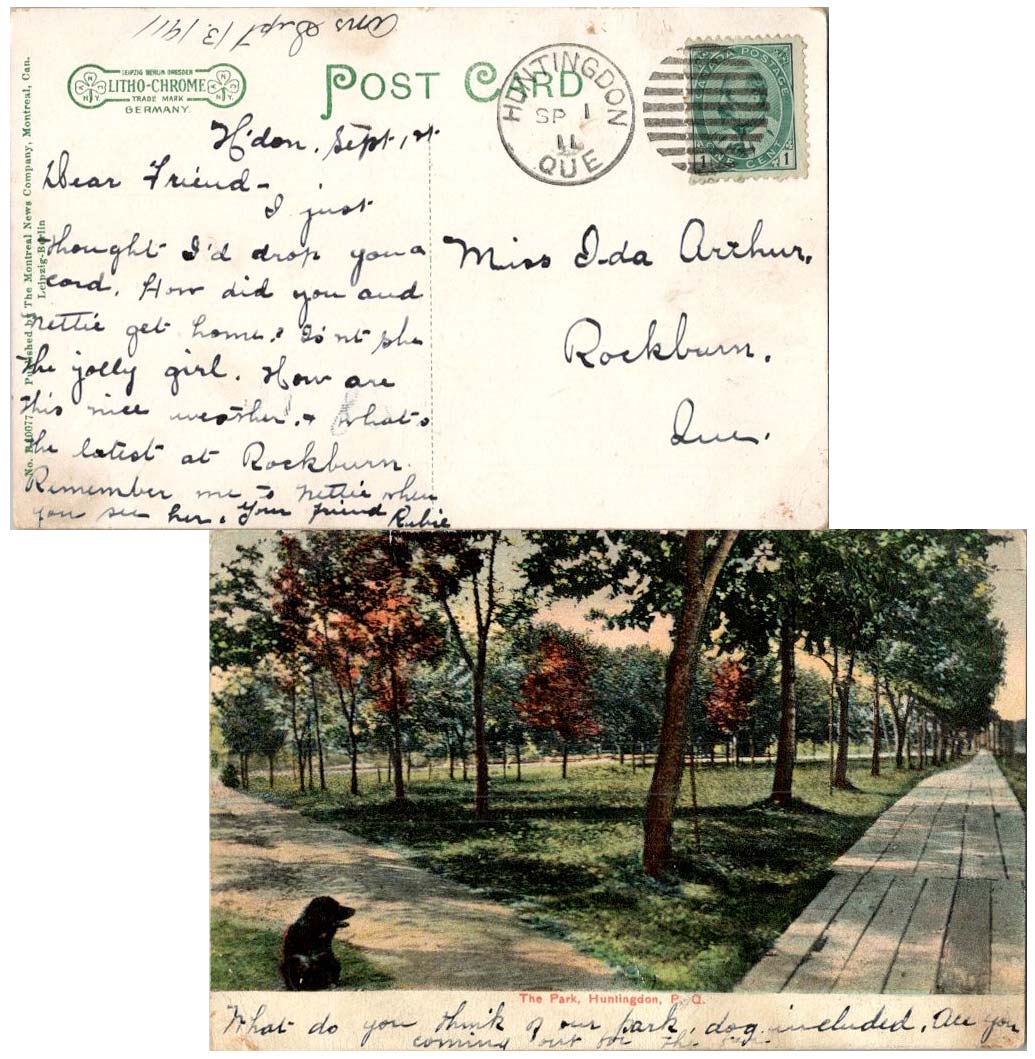 Ans Sept 13, 1911
LEIPZIG BERLIN DRESDEN
LITHO-CHROME
TRADE MARK
GERMANY.
N
N.Y.
N
N.Y.
POST CARD
HUNTINGDON
SP 1
11
QUE
CANADA POSTAGE
ONE CENT
1 1
No. B40077 Published by The Montreal News Company, Montreal, Can.
Leipzig-Berlin
H'don, Sept, 1st
Dear Friend -
I just
thought I'd drop you a
card. How did you and
Nettie get home? Is'nt she
the jolly girl. How are
this nice weather. & what's
the latest at Rockburn.
Remember me to Nettie when
you see her. Your friend Rubie
Miss Ida Arthur,
Rockburn.
Que.
The Park, Huntingdon, P. Q.
What do you think of our park, dog included. Are you
coming out for the